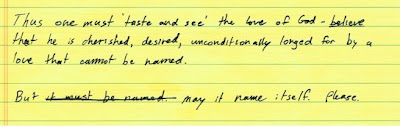 Thus one must 'taste and see' the love of God - believe
that he is cherished, desired, unconditionally longed for by a
love that cannot be named.
But it must be named. may it name itself. Please.